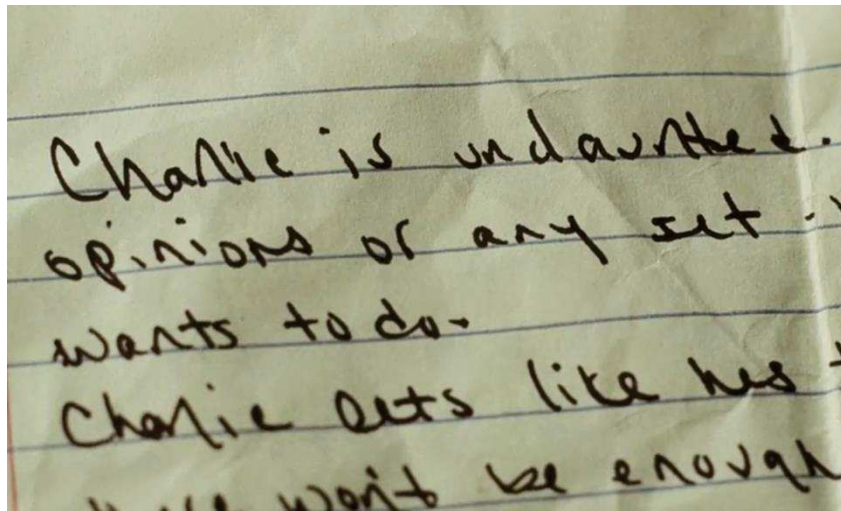 Charlie is undaunted.
opinions or any set
wants to do.
Charlie acts like hes
won't be enough